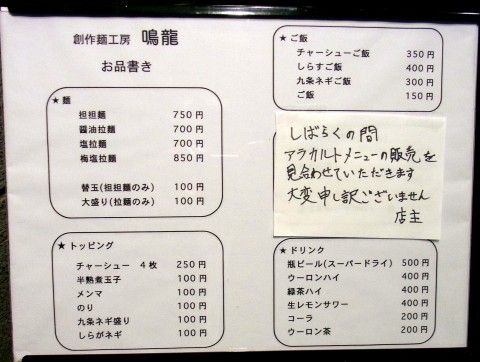 創作麺工房 鳴龍
お品書き
★麺
担担麺 750円
醤油拉麺 700円
塩拉麺 700円
梅塩拉麺 850円
替玉(担担麺のみ) 100円
大盛り(拉麺のみ) 100円
★トッピング
チャーシュー 4枚 250円
半熟煮玉子 100円
メンマ 100円
のり 100円
九条ネギ盛り 100円
しらがネギ 100円
★ご飯
チャーシューご飯 350円
しらすご飯 400円
九条ネギご飯 300円
ご飯 150円
しばらくの間
アラカルトメニューの販売を
見合わせていただきます
大変申し訳ございません
店主
★ドリンク
瓶ビール(スーパードライ) 500円
ウーロンハイ 400円
緑茶ハイ 400円
生レモンサワー 400円
コーラ 200円
ウーロン茶 200円